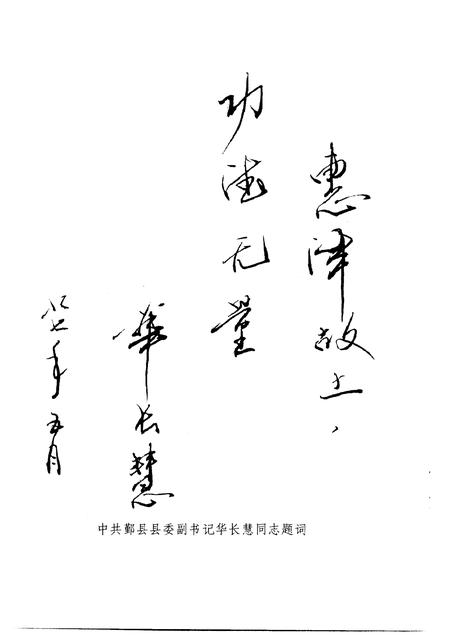 惠泽故土，
功德无量
華长慧
八七年五月
中共鄞县县委副书记华长慧同志题词